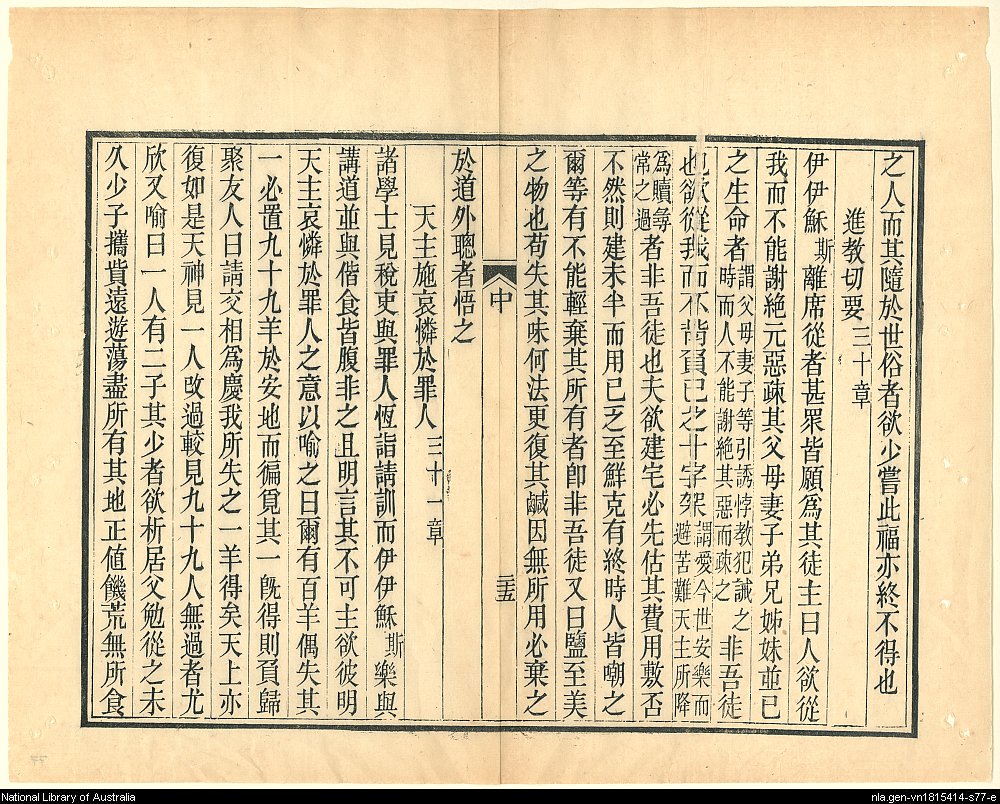 之人而其隨於世俗者欲少嘗此福亦終不得也
進教切要三十章
伊伊穌斯離席從者甚眾皆願爲其徒主曰人欲從
我而不能謝絕元惡疎其父母妻子弟兄姊妹並已
之生命者謂父母妻子等引誘悖教犯誡之時而人不能謝絕其惡而疎之非吾徒
也欲從我而不背負已之十字架謂愛今世安樂而避苦難天主所降
爲贖尋常之過者非吾徒也夫欲建宅必先估其費用敷否
不然則建未半而用已乏至鮮克有終時人皆嘲之
爾等有不能輕棄其所有者卽非吾徒又曰鹽至美
之物也苟失其味何法更復其鹹因無所用必棄之
中
三五
於道外聰者悟之
天主施哀憐於罪人三十一章
諸學士見稅吏與罪人恆詣請訓而伊伊穌斯樂與
講道並與偕食皆腹非之且明言其不可主欲彼明
天主哀憐於罪人之意以喻之曰爾有百羊偶失其
一必置九十九羊於安地而徧覓其一旣得則負歸
聚友人曰請交相爲慶我所失之一羊得矣天上亦
復如是天神見一人改過較見九十九人無過者尤
欣又喻曰一人有二子其少者欲析居父勉從之未
久少子攜貲遠遊蕩盡所有其地正值饑荒無所食
National Library of Australia
nla.gen-vn1815414-s77-e